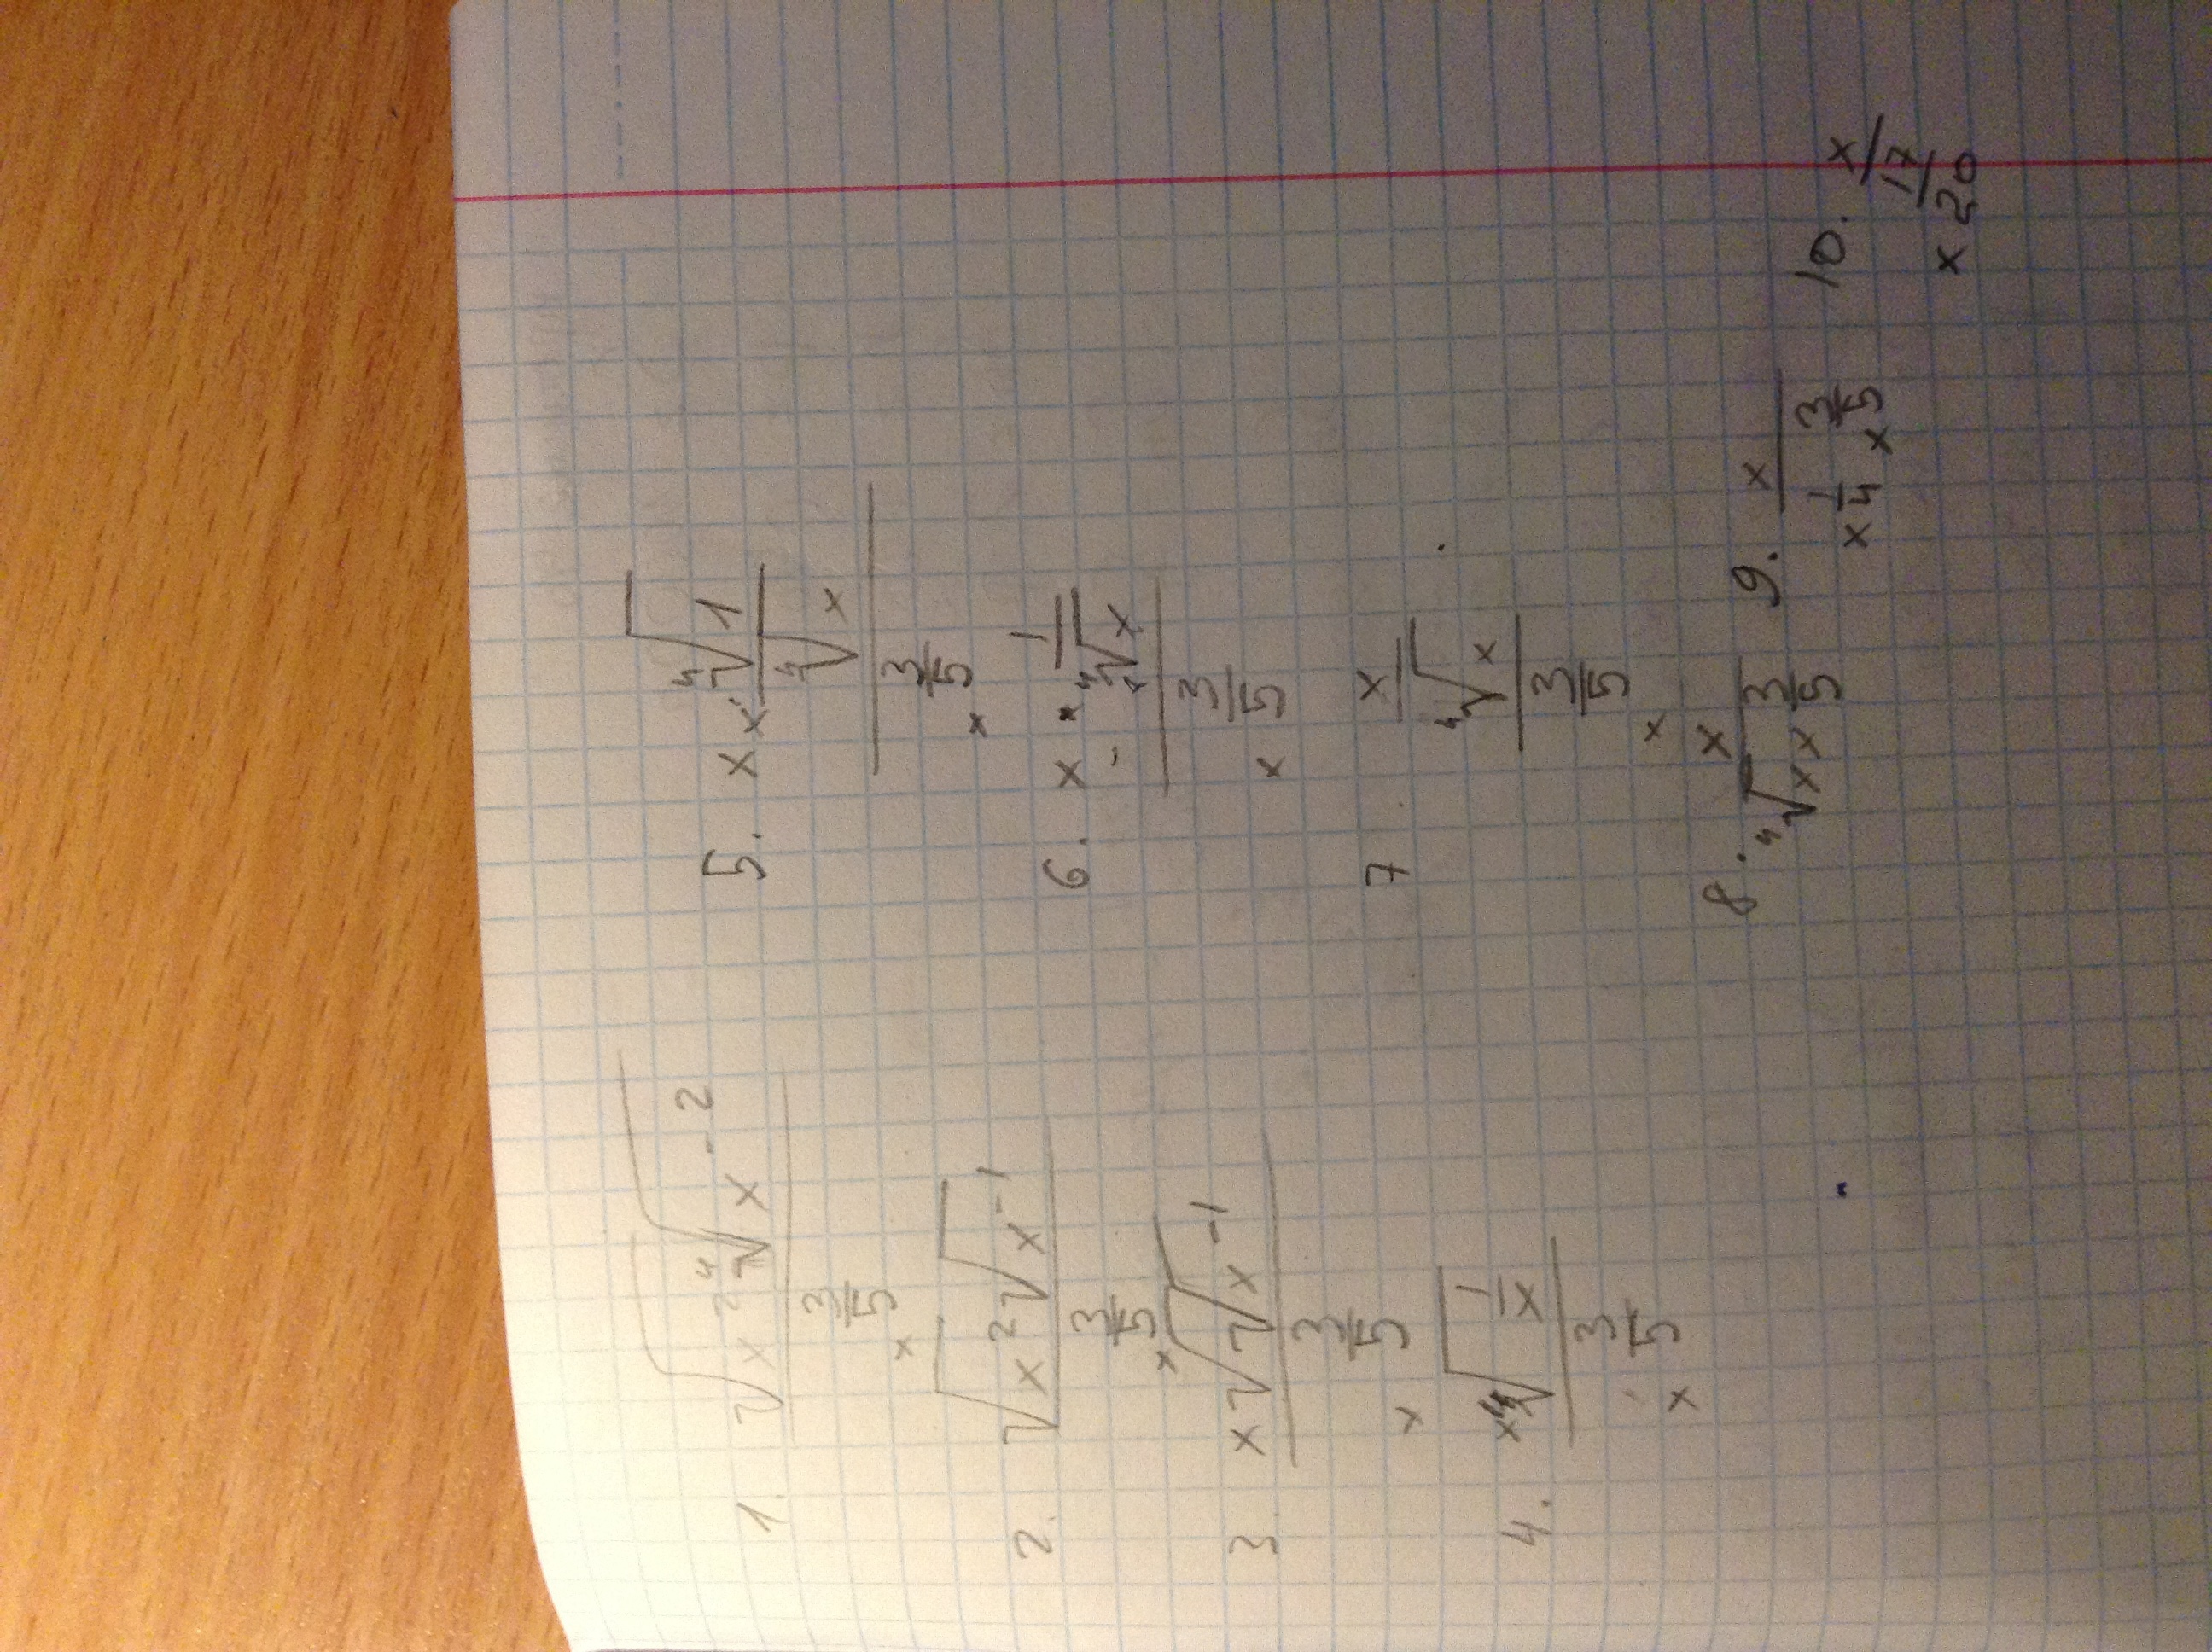 1. √(x² ⁴√(x⁻²)) / x^(3/5)
2. √(x² √(x⁻¹)) / x^(3/5)
3. x √(√(x⁻¹)) / x^(3/5)
4. x ⁴√(1/x) / x^(3/5)
5. x × ⁴√1 / ⁴√x / x^(3/5)
6. x × 1 / ⁴√x / x^(3/5)
7 x / ⁴√x / x^(3/5)
8. x / ⁴√x x^(3/5)
9. x / x^(1/4) x^(3/5)
10. x / x^(17/20)